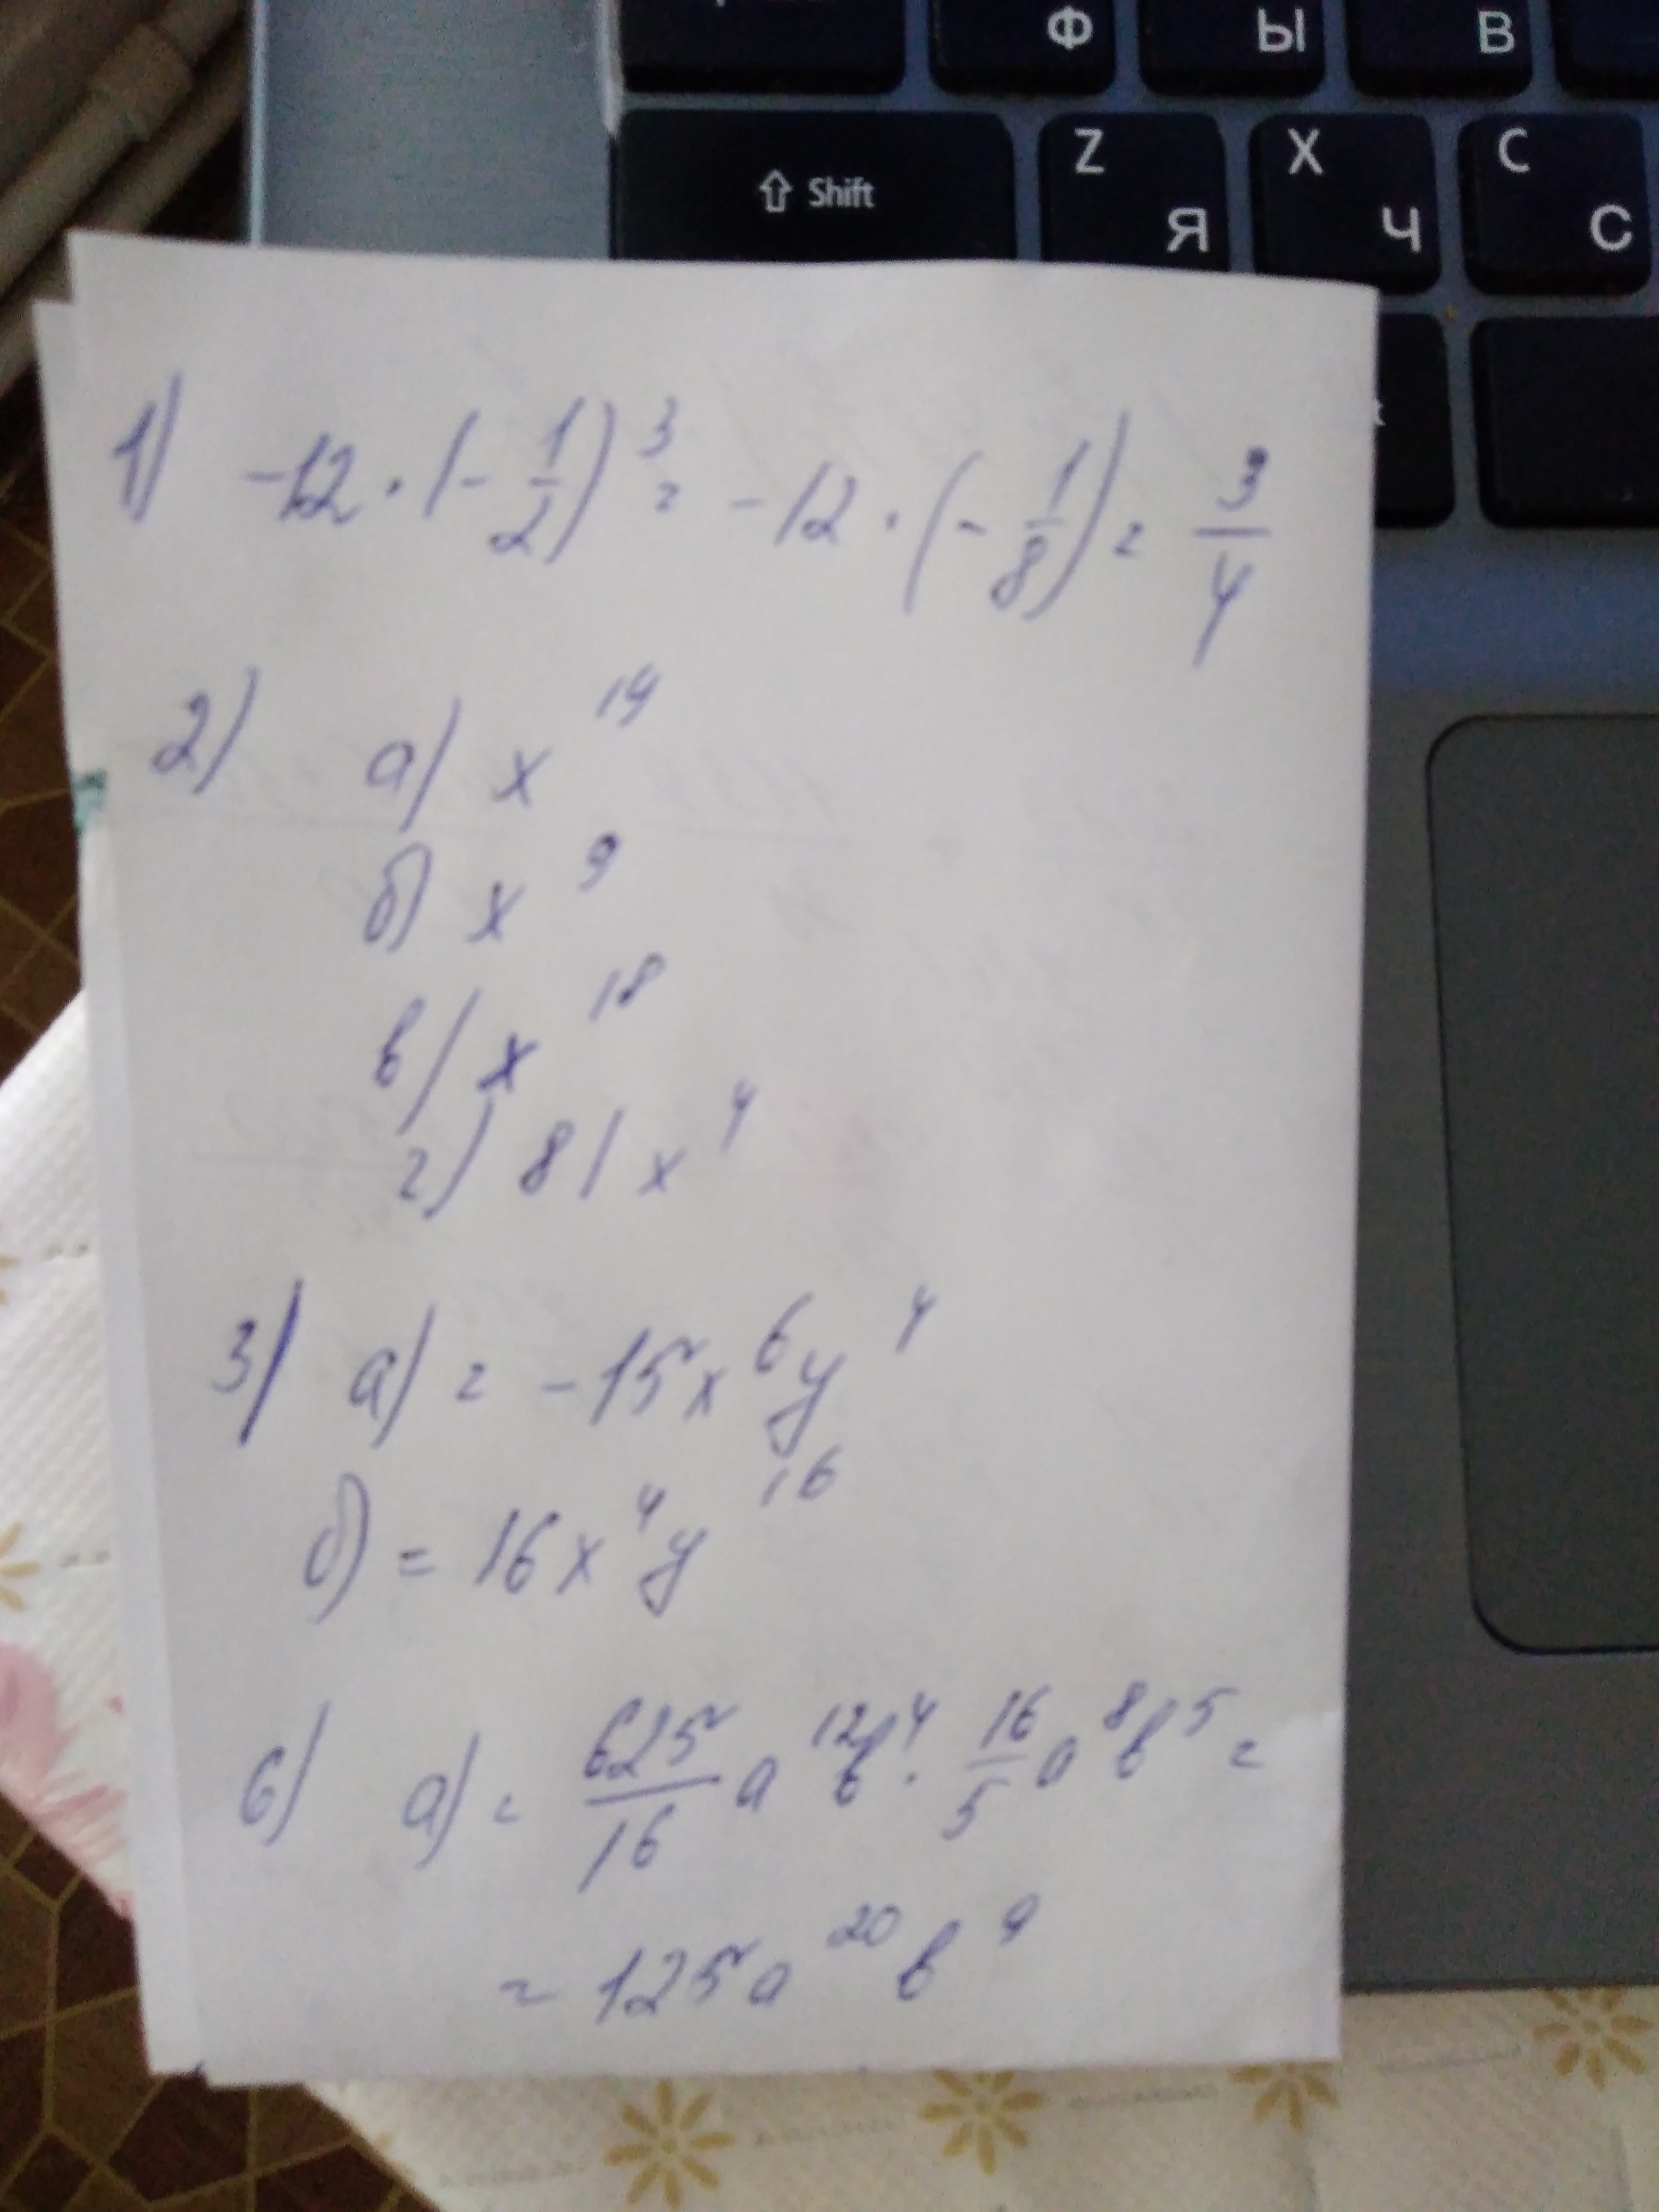 Ф Ы В
Shift Z Я X Ч C С
1) -12 · (-1/2)^3 = -12 · (-1/8) = 3/4
2) а) x^14
б) x^9
в) x^18
г) 81x^4
3) а) = -15x^6y^4
б) = 16x^4y^16
6) а) = 625/16 a^12 b^4 · 16/5 a^8 b^5 =
= 125a^20 b^9